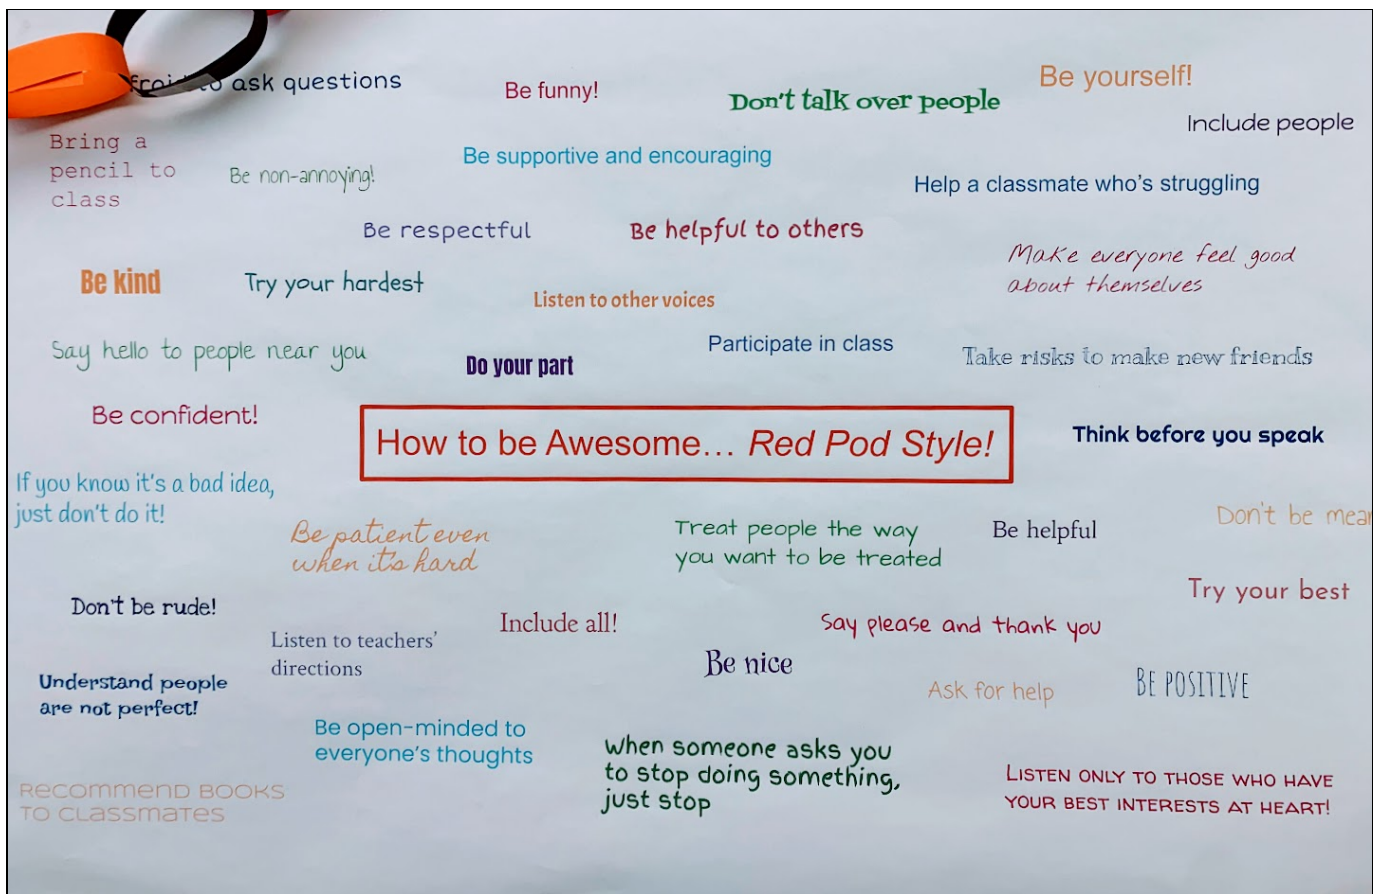 ask questions
Be funny!
Don't talk over people
Be yourself!
Include people
Bring a
pencil to
class
Be non-annoying!
Be supportive and encouraging
Help a classmate who's struggling
Be respectful
Be helpful to others
Make everyone feel good
about themselves
Be kind
Try your hardest
Listen to other voices
Say hello to people near you
Do your part
Participate in class
Take risks to make new friends
Be confident!
How to be Awesome... Red Pod Style!
Think before you speak
If you know it's a bad idea,
just don't do it!
Be patient even
when it's hard
Treat people the way
you want to be treated
Be helpful
Don't be mean
Try your best
Don't be rude!
Listen to teachers'
directions
Include all!
Say please and thank you
Be nice
Ask for help
BE POSITIVE
Understand people
are not perfect!
Be open-minded to
everyone's thoughts
When someone asks you
to stop doing something,
just stop
LISTEN ONLY TO THOSE WHO HAVE
YOUR BEST INTERESTS AT HEART!
Recommend BOOKS
TO CLASSMATES